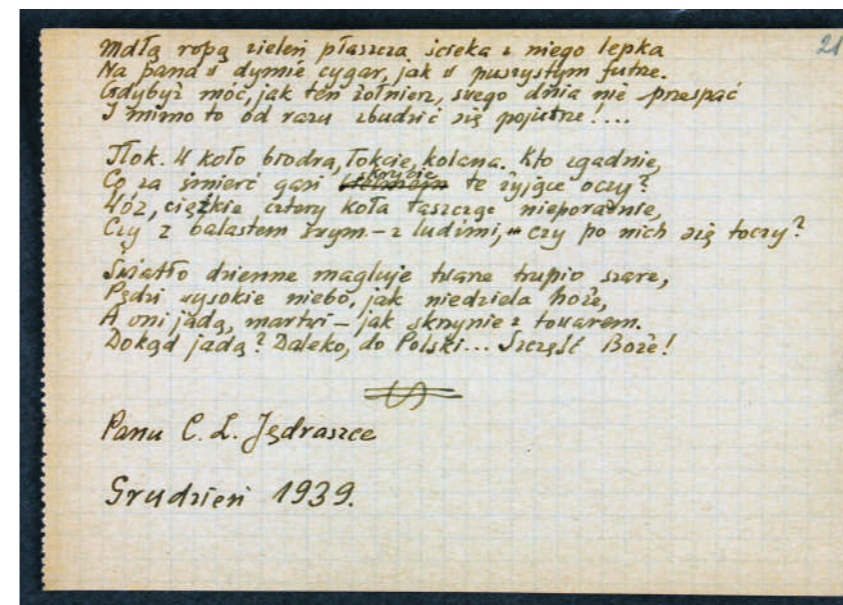 21
Mdłą ropą zieleń płaszcza ścieka z niego lepka
Na pana w dymie cygar, jak w puszystym futrze.
Gdybyż móc, jak ten żołnierz, swego dnia nie przespać
I mimo to od razu zbudzić się pojutrze!...
Tłok. W koło biodra, łokcie, kolana. Kto zgadnie,
Co za śmierć gasi skrycie te żyjące oczy?
Wóz, ciężkie cztery koła taszcząc nieporadnie,
Czy z balastem żwym – z ludźmi, czy po nich się toczy?
Światło dzienne magluje twarze trupio szare,
Pędzi wysokie niebo, jak niedziela hoże,
A oni jadą, martwi – jak skrzynie z towarem.
Dokąd jadą? Daleko, do Polski... Szczęść Boże!
Panu C. L. Jędraszce
Grudzień 1939.